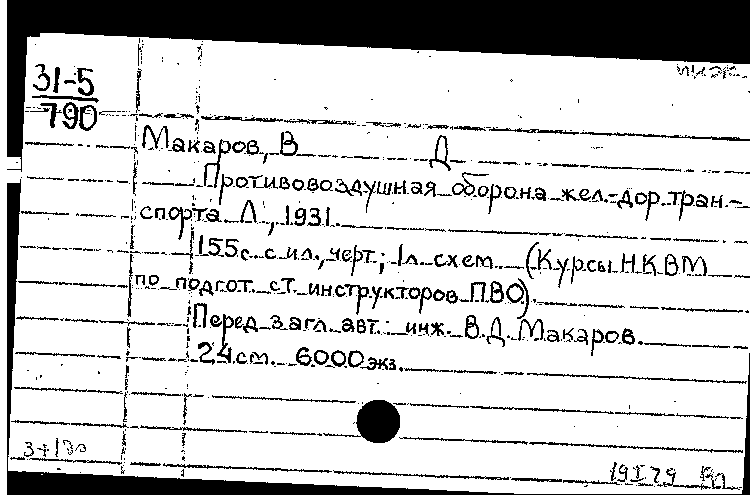 31-5
790
Макаров, В Д
Противовоздушная оборона жел.-дор. тран-
спорта. Л., 1931.
155 с. с ил., черт.; 1 л. схем. (Курсы НКВМ
по подгот. ст. инструкторов ПВО).
Перед загл. авт.: инж. В.Д. Макаров.
24 см. 6000 экз.
19 I 79